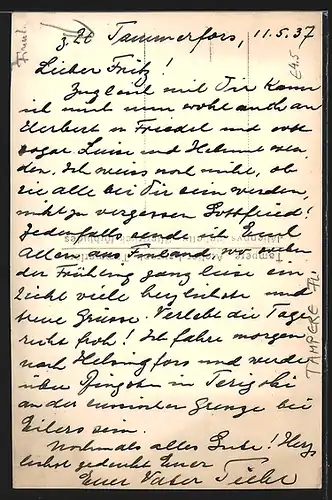 z. Zt. Tammerfors, 11.5.37
Lieber Fritz!
Zugleich mit Dir kann
ich mich nun wohl auch an
Herbert u Friedel und evtl
sogar Luise und Helmut wen-
den. Ich weiss noch nicht, ob
sie alle bei Dir sein werden,
nicht zu vergessen Gottfried!
Jedenfalls sende ich Euch
Allen aus Finland, wo eben
der Frühling ganz leise ein-
zieht viele herzlichste und
treue Grüsse. Verlebt die Tage
recht froh! Ich fahre morgen
nach Helsingfors und werde
über Pfingsten in Terijoki
an der russischen Grenze bei
Eilers sein.
Nochmals alles Gute! Herz-
lichst gedenkt Euer
Euer Vater
TAMPERE
Finnl.